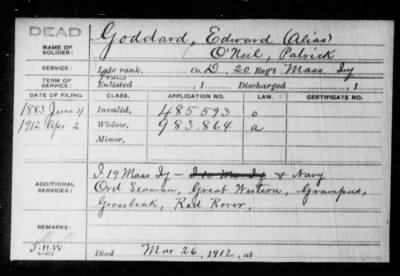 DEAD
NAME OF SOLDIER: Goddard, Edward (Alias)
O'Neil, Patrick
SERVICE: Late rank, Co. D, 20 Reg't Mass Inf
TERM OF SERVICE: Enlisted , 1 Discharged , 1
DATE OF FILING. CLASS. APPLICATION NO. LAW. CERTIFICATE NO.
1883 June 4 Invalid, 485593 o
1912 Apr 2 Widow, 983.864 a
Minor,
ADDITIONAL SERVICES: I 19 Mass Inf - & Navy
Ord Seaman, Great Western, Grampus,
Grosbeak, Red Rover,
REMARKS:
J.H.W.
Died Mar 26, 1912, at